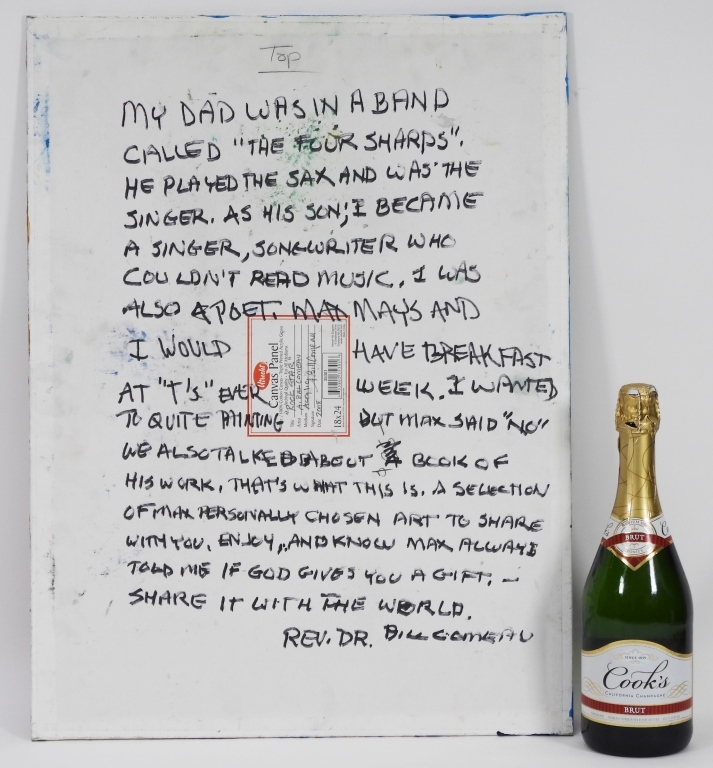 Top
MY DAD WAS IN A BAND
CALLED "THE FOUR SHARPS".
HE PLAYED THE SAX AND WAS THE
SINGER. AS HIS SON, I BECAME
A SINGER, SONGWRITER WHO
COULDN'T READ MUSIC. I WAS
ALSO A POET. MAX MAYS AND
I WOULD HAVE BREAKFAST
AT "T'S" EVER WEEK. I WANTED
TO QUITE PAINTING BUT MAX SAID "NO"
WE ALSO TALKED ABOUT A BOOK OF
HIS WORK. THAT'S WHAT THIS IS. A SELECTION
OF MAX PERSONALLY CHOSEN ART TO SHARE
WITH YOU. ENJOY, AND KNOW MAX ALWAYS
TOLD ME IF GOD GIVES YOU A GIFT, -
SHARE IT WITH THE WORLD.
REV. DR. BILL COMEAU
Utrecht
Canvas Panel
ROCK STAR
2008
18x24
BRUT
Cook's
CALIFORNIA CHAMPAGNE
BRUT